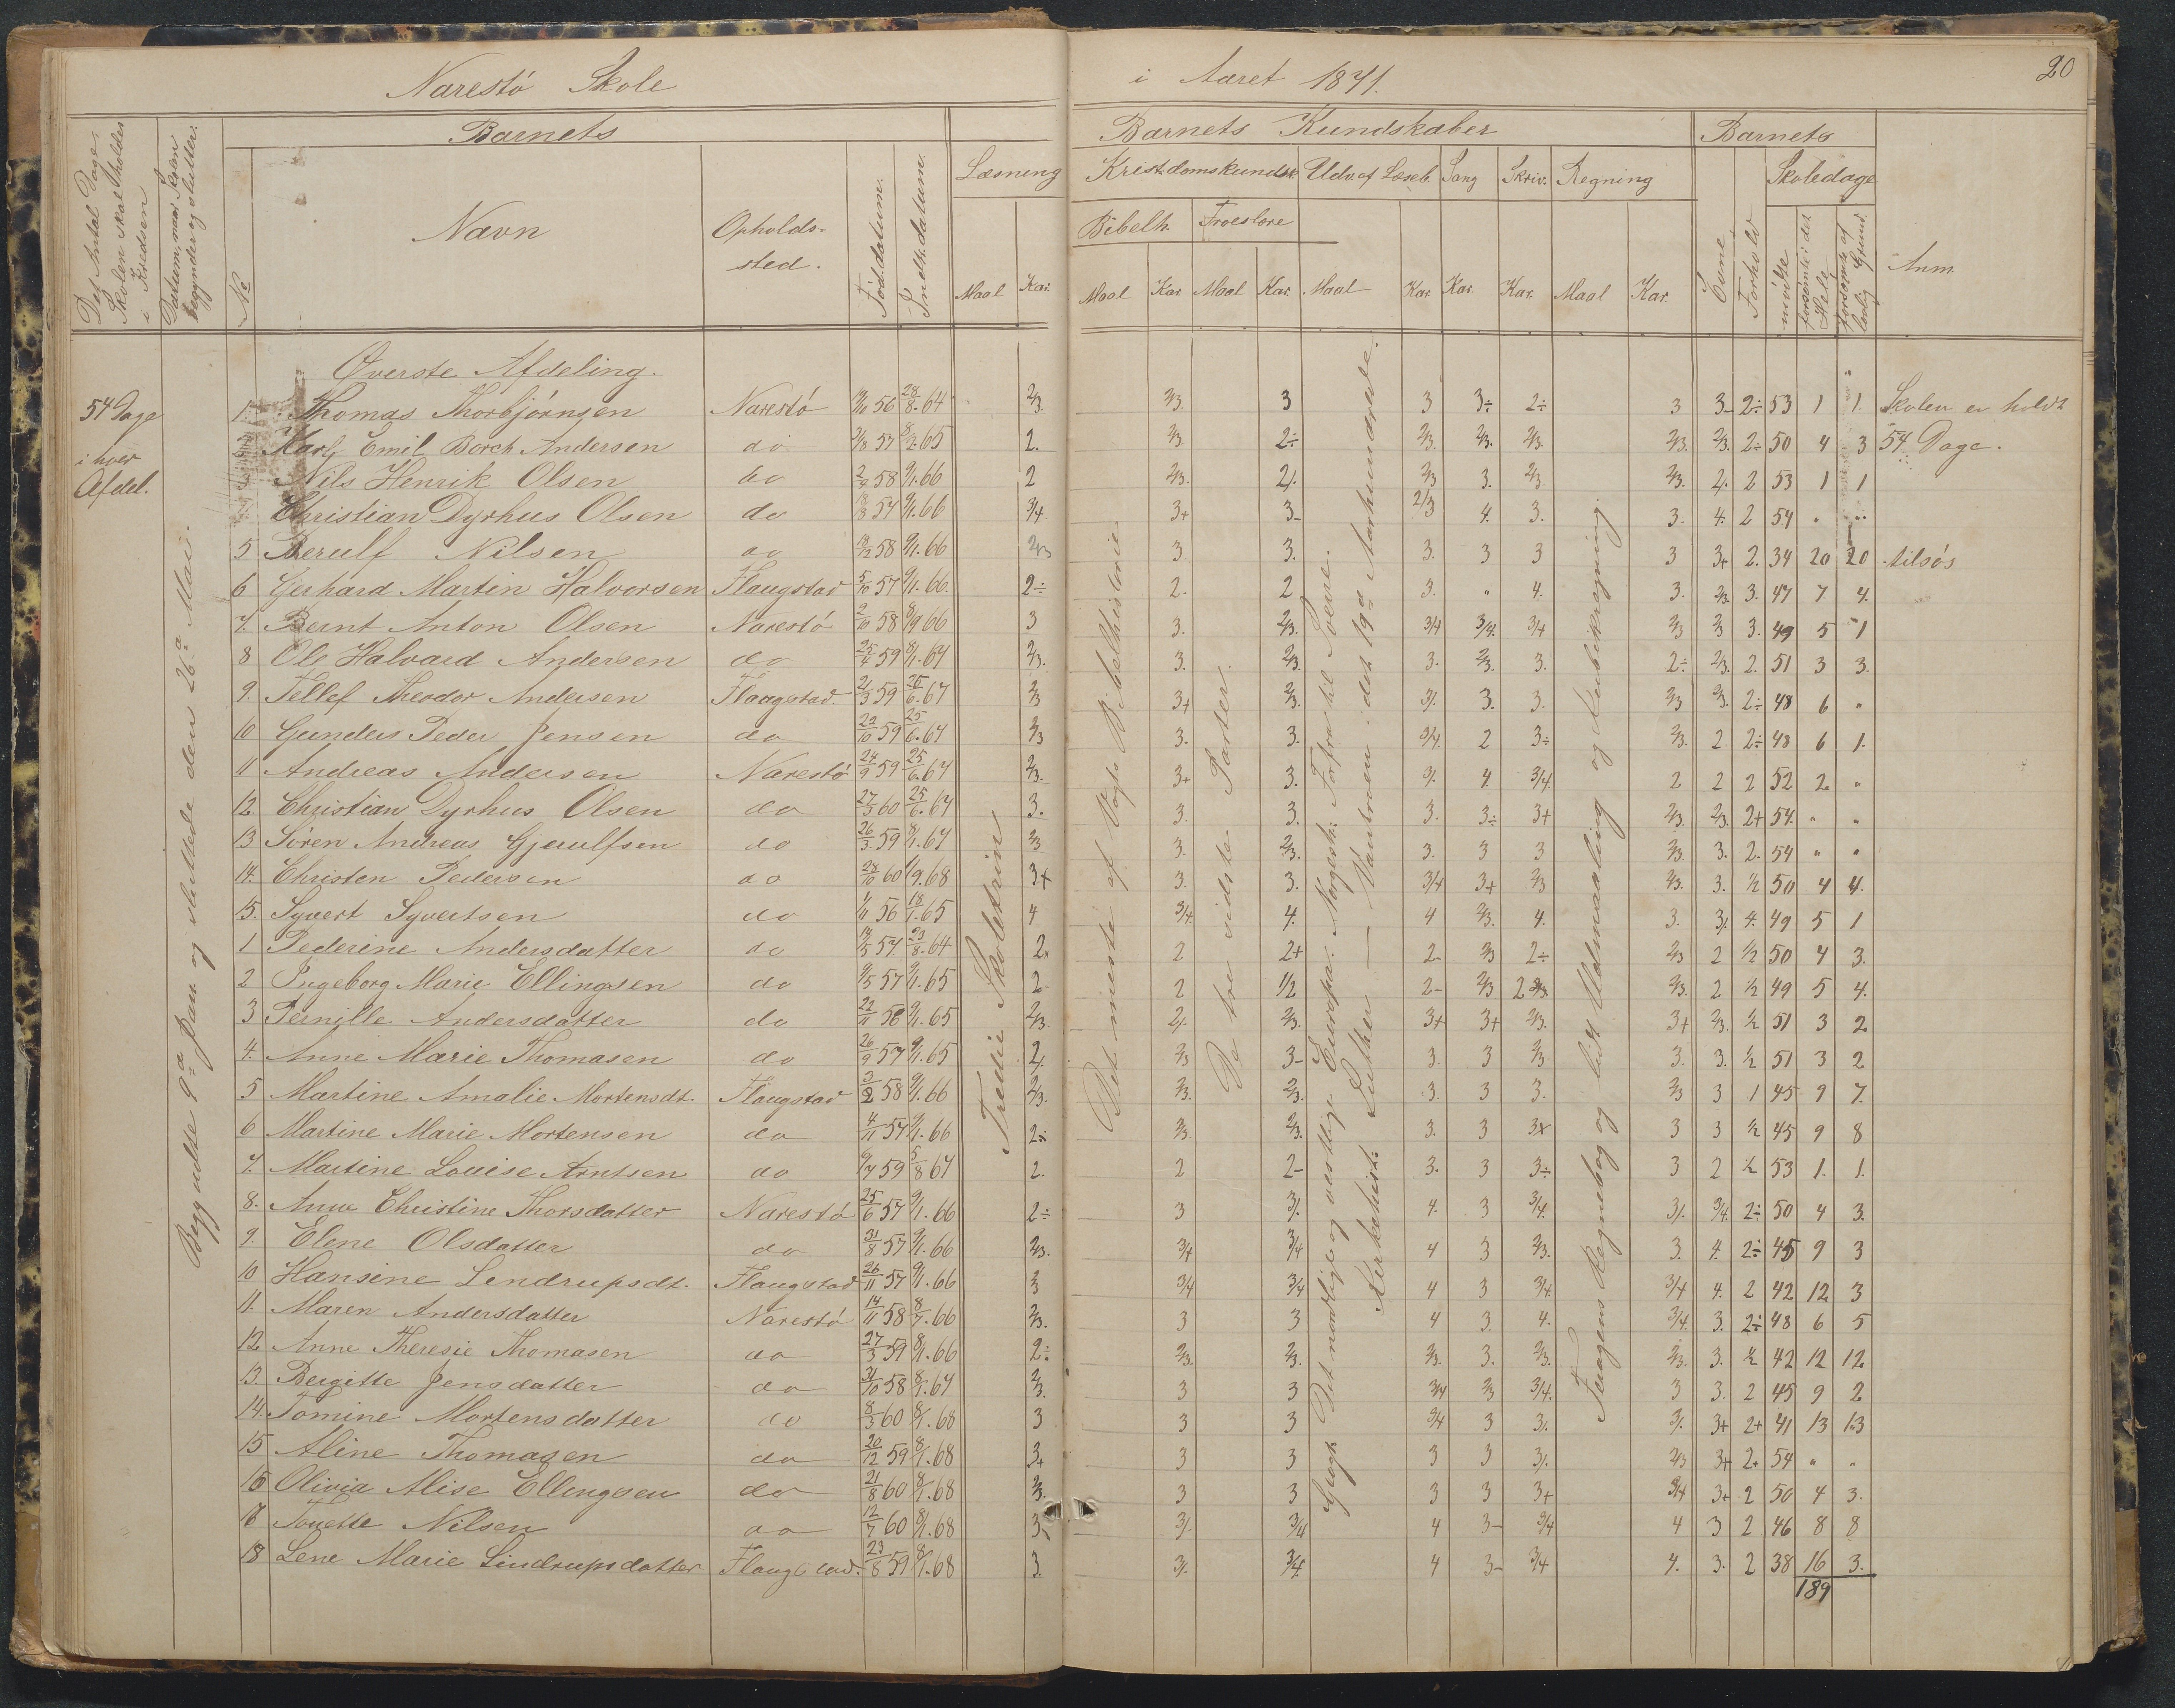 Narestö Skole i Aaret 1871. 20
Det Antal Dage Skolen skal holdes i Kredsen
Datum, naar Skolen begynder og slutter.
Barnets
Barnets Kundskaber
Barnets
No Navn Opholdssted. Föd.datum. Indtr.datum.
Læsning Kristdomskundsk. Udv. af Læseb. Sang Skriv. Regning
Bibelh. Troeslære
Maal Kar. Maal Kar. Maal Kar. Maal Kar. Kar. Kar. Maal Kar.
Evne Forhold Skoledage
mödte forsömte i det Hele forsömte af lovlig Grund
Anm.
54 Dage i hver Afdel.
Begyndte 9de Jan. og sluttede den 26de Mai.
Øverste Afdeling.
1. Thomas Thorbjörnsen Narestö 56 28/8.64 2/3. 2/3. 3 3 3÷ 2÷ 3 3- 2÷ 53 1 1. Skolen er holdt
2 Karl Emil Borch Andersen do 57 65 2. 2/3. 2÷ 2/3. 2/3. 2/3. 2/3. 2/3. 2÷ 50 4 3 54 Dage.
Nils Henrik Olsen do 58 9/1.66 2 2/3. 2/. 2/3 3. 2/3. 2/3. 2/. 2 53 1 1
Christian Dyrhus Olsen do 57 9/1.66 3/4 3+ 3- 2/3 4. 3. 3. 4. 2 54 " "
5 Berulf Nilsen do 58 9/1.66 2/3 3. 3. 3. 3 3 3 3+ 2. 34 20 20 tilsös
6 Gerhard Martin Halvorsen Flaugstad 5/10 57 9/1.66. 2÷ 2. 2 3. " 4. 3. 2/3. 3. 47 7 4.
7. Bernt Anton Olsen Narestö 2/10 58 66 3 3. 2/3. 3/4 3/4. 3/4 2/3 2/3 3. 49 5 1
8 Ole Halvard Andersen do 25/4 59 8/1.67 2/3. 3. 2/3. 3. 2/3. 3. 2÷ 2/3. 2. 51 3 3.
9. Tellef Theodor Andersen Flaugstad. 21/3 59 25/6.67 2/3 3+ 2/3. 3/. 3. 3. 2/3 2/3. 2÷ 48 6 "
10 Gunders Peder Jensen do 22/10 59 25/6.67 2/3 3. 3. 3/4. 2 3÷ 2/3. 2 2÷ 48 6 1.
11 Andreas Andersen Narestö 24/9 59 25/6.67 2/3. 3+ 3. 3/. 4. 3/4. 2 2 2 52 2. "
12. Christian Dyrhus Olsen do 27/3 60 25/6.67 3. 3. 3. 3. 3÷ 3+ 2/3. 2/3. 2+ 54. " "
13. Sören Andreas Gjerulfsen do 26/3 59 8/1.67 2/3 3. 2/3. 3. 3 3 2/3. 3. 2. 54 " "
14. Christen Pedersen do 28/10 60 68 3+ 3. 3. 3/4 3+ 2/3 2/3. 3. 1/2 50 4 4.
15. Syvert Syvertsen do 56 18/1.65 4 3/4. 4. 4 2/3. 4. 3. 3/. 4. 49 5 1
1 Pederine Andersdatter do 57 23/8.64 2. 2 2+ 2- 2/3 2÷ 2/3 2 1/2 50 4 3.
2 Ingeborg Marie Ellingsen do 9/5 57 9/1.65 2 2 1/2 2- 2/3 2 2/3. 2/3. 2 1/2 49 5 4.
3 Pernille Andersdatter do 22/11 56 9/1.65 2/3. 2/. 2/3. 3+ 3+ 2/3. 3+ 2/3. 1/2 51 3 2
4. Anne Marie Thomasen do 26/9 57 9/1.65 2/. 2/3 3- 3. 3 2/3 3. 3. 1/2 51 3 2
5 Martine Amalie Mortensdt. Flaugstad 3/2 58 9/1.66 2/3. 2/3. 2/3. 3. 3 3. 2/3 3 1 45 9 7.
6 Martine Marie Mortensen do 4/11 57 9/1.66 2÷ 2/3. 2/3. 3. 3 3x 3 3 1/2 45 9 8
7. Martine Louise Arntsen do 9/7 59 5/8 67 2. 2 2- 3. 3 3÷ 3 2 1/2 53 1. 1.
8. Anne Christine Thorsdatter Narestö 25/6 57 9/1.66 2÷ 3 3/. 4. 3 3/4. 3/. 3/4. 2÷ 50 4 3.
9. Elene Olsdatter do 31/8 57 9/1.66 2/3. 3/4 3/4 4 3 2/3. 3. 4. 2÷ 45 9 3
10 Hansine Lendrupsdt. Flaugstad 26/11 57 9/1.66 2/3 3/4 3/4 4 3 3/4. 3/4 4. 2 42 12 3
11. Maren Andersdatter Narestö 14/11 58 8/7.66 2/3. 3 3 4 3. 4. 3/4. 3. 2÷ 48 6 5
12. Anne Theresie Thomasen do 27/3 59 8/1.66 2÷ 2/3. 2/3. 2/3. 3. 2/3. 2/3. 3. 1/2 42 12 12
13. Bergitte Jensdatter do 31/10 58 8/1.67 2/3. 3 3 3/4 2/3 3/4. 3 3. 2 45 9 2
14. Tomine Mortensdatter do 8/3 60 8/1.68 3 3 3 3/4 3 3/. 3/. 3+ 2+ 41 13 13
15 Aline Thomasen do 20/12 59 8/1.68 3+ 3 3 3 3 3/. 2/3 3+ 2+ 54 " "
16 Olivia Alise Ellingsen do 21/8 60 8/1.68 2/3. 3 3 3 3 3+ 3/4 3+ 2 50 4 3.
17 Tonette Nilsen do 12/7 60 8/1.68 3- 3/. 3/4 4 3- 3/4 4 3 2 46 8 8
18 Lene Marie Lindrupsdatter Flaugstad. 23/8 59 8/1.68 3. 3/. 3/4. 4 3- 3/4 4. 3. 2 38 16 3.
189
Tredie Skoletrin
Det meste af Vogts Bibelhistorie
De tre sidste Parter.
Geogr. Det nordlige og vestlige Europa. Norgesh: Fortra til Sverre.
Kirkehist: Luther — Vantroen i det 19de Aarhundrede.
Fengers Regnebog og lidt Udmaaling og Kubikregning.